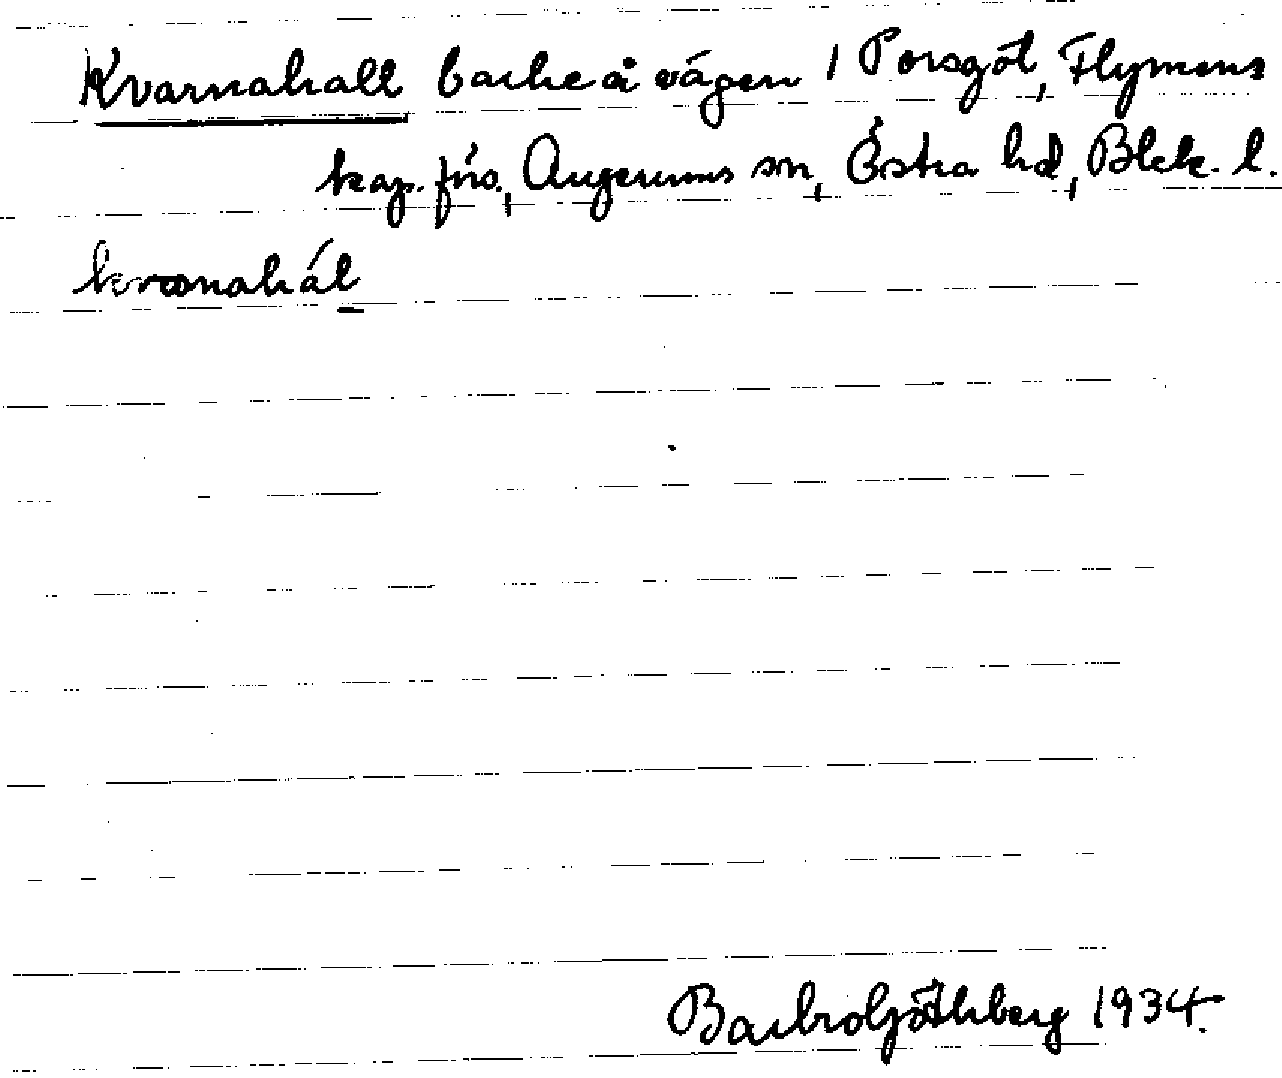 Kvarnahall backe å vägen i Porsgöl, Flymens
kap. förs., Augerums sn, Östra hd, Blek. l.
Barbro Göthberg 1934.